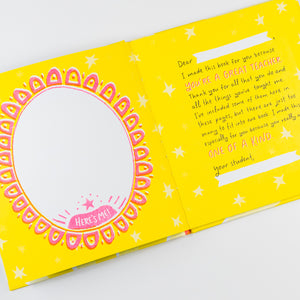 HERE'S ME!
Dear
I made this book for you because
YOU'RE A GREAT TEACHER.
Thank you for all that you do and
all the things you've taught me.
I've included some of them here in
these pages, but there are just too
many to fit into one book. I made it
especially for you because you really
ONE OF A KIND.
Your student,